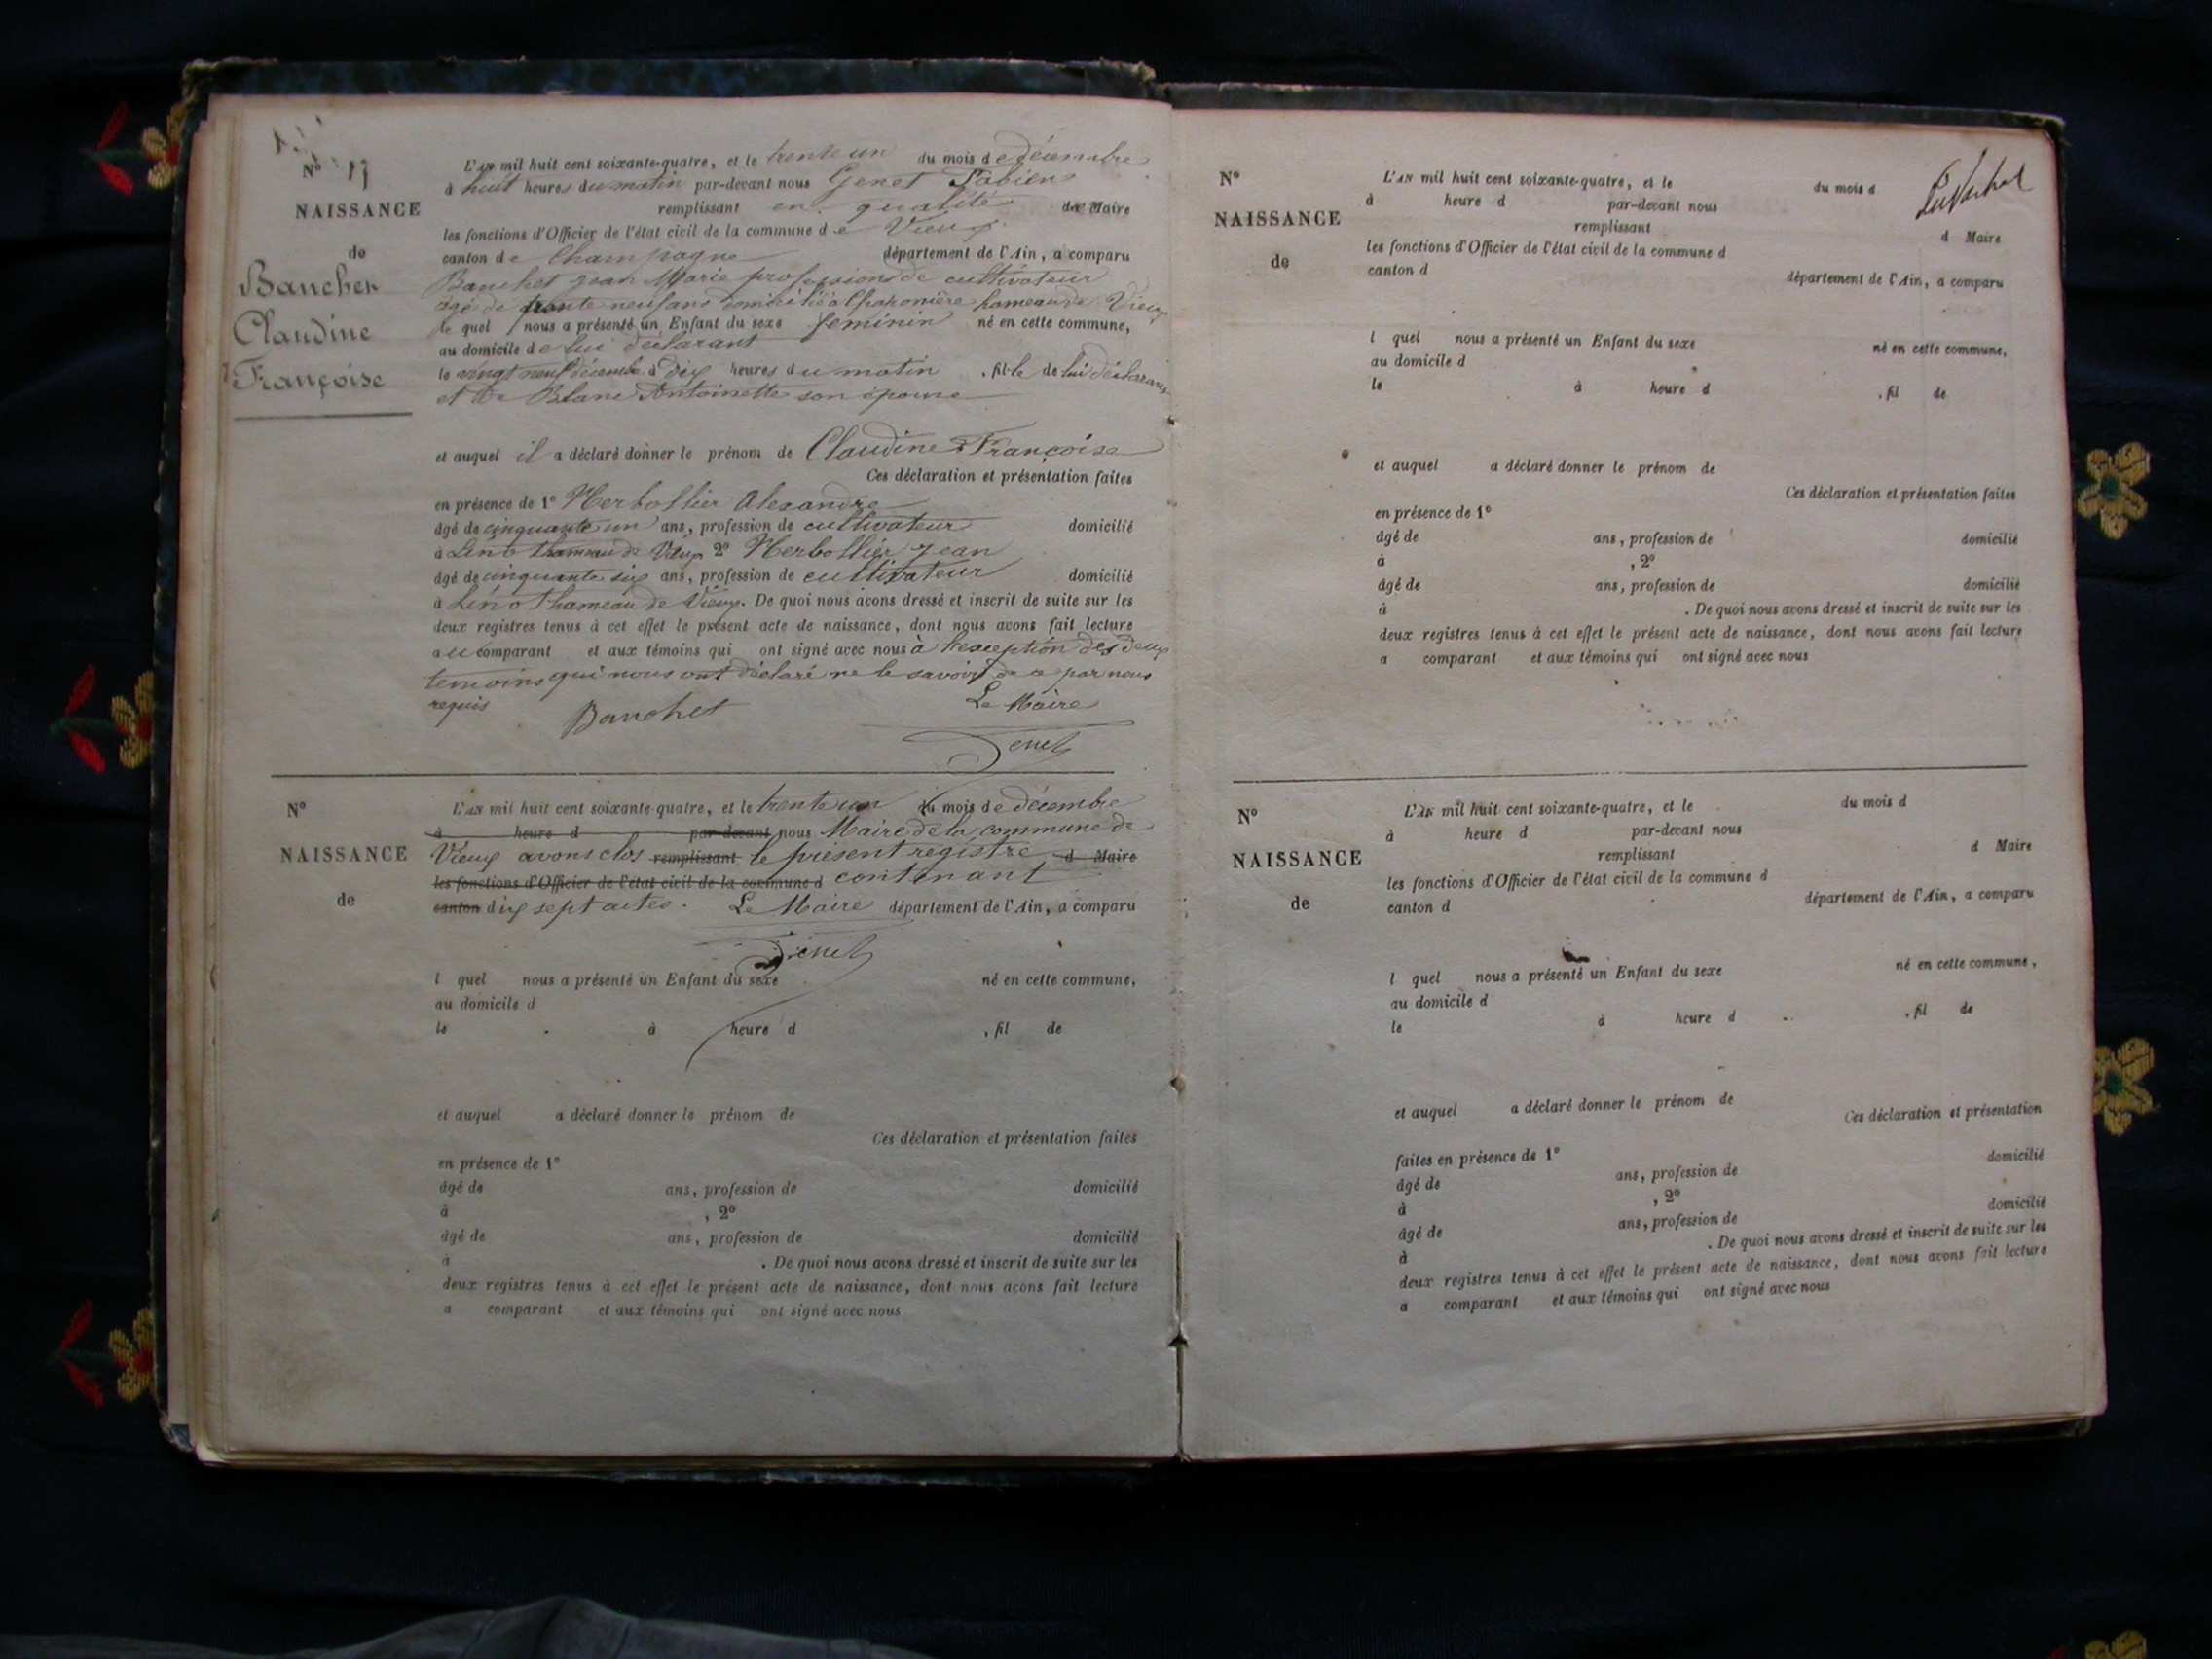 N° 17
NAISSANCE
de
Banchet
Claudine
Françoise
L'AN mil huit cent soixante-quatre, et le trente un du mois de décembre
à huit heures du matin par-devant nous Genet Fabien
remplissant en qualité de Maire
les fonctions d'Officier de l'état civil de la commune de Vieux
canton de Champagne département de l'Ain, a comparu
Banchet Jean Marie profession de cultivateur
âgé de trente neuf ans domicilié à Chaponière hameau de Vieux
le quel nous a présenté un Enfant du sexe féminin né en cette commune,
au domicile de lui déclarant
le vingt neuf décembre à dix heures du matin , fille de lui déclarant
et de Blanc Antoinette son épouse
et auquel il a déclaré donner le prénom de Claudine Françoise
Ces déclaration et présentation faites
en présence de 1° Herbollier Alexandre
âgé de cinquante un ans, profession de cultivateur domicilié
à Linot hameau de Vieux 2° Herbollier Jean
âgé de cinquante six ans, profession de cultivateur domicilié
à Linot hameau de Vieux. De quoi nous avons dressé et inscrit de suite sur les
deux registres tenus à cet effet le présent acte de naissance, dont nous avons fait lecture
au comparant et aux témoins qui ont signé avec nous à l'exception des deux
temoins qui nous ont déclaré ne le savoir de ce par nous
requis
Banchet Le Maire
Genet
N°
NAISSANCE
de
L'AN mil huit cent soixante-quatre, et le trente un du mois de décembre
à heure d par-devant nous Maire de la commune de
Vieux avons clos remplissant le présent registre d Maire
les fonctions d'Officier de l'état civil de la commune d contenant
canton dix sept actes. Le Maire département de l'Ain, a comparu
Genet
l quel nous a présenté un Enfant du sexe né en cette commune,
au domicile d
le à heure d , fil de
et auquel a déclaré donner le prénom de
Ces déclaration et présentation faites
en présence de 1°
âgé de ans, profession de domicilié
à , 2°
âgé de ans, profession de domicilié
à . De quoi nous avons dressé et inscrit de suite sur les
deux registres tenus à cet effet le présent acte de naissance, dont nous avons fait lecture
a comparant et aux témoins qui ont signé avec nous
N°
NAISSANCE
de
L'AN mil huit cent soixante-quatre, et le du mois d
à heure d par-devant nous
remplissant d Maire
les fonctions d'Officier de l'état civil de la commune d
canton d département de l'Ain, a comparu
l quel nous a présenté un Enfant du sexe né en cette commune,
au domicile d
le à heure d , fil de
et auquel a déclaré donner le prénom de
Ces déclaration et présentation faites
en présence de 1°
âgé de ans, profession de domicilié
à , 2°
âgé de ans, profession de domicilié
à . De quoi nous avons dressé et inscrit de suite sur les
deux registres tenus à cet effet le présent acte de naissance, dont nous avons fait lecture
a comparant et aux témoins qui ont signé avec nous
N°
NAISSANCE
de
L'AN mil huit cent soixante-quatre, et le du mois d
à heure d par-devant nous
remplissant d Maire
les fonctions d'Officier de l'état civil de la commune d
canton d département de l'Ain, a comparu
l quel nous a présenté un Enfant du sexe né en cette commune,
au domicile d
le à heure d , fil de
et auquel a déclaré donner le prénom de
Ces déclaration et présentation
faites en présence de 1° domicilié
âgé de ans, profession de
à , 2° domicilié
âgé de ans, profession de
à . De quoi nous avons dressé et inscrit de suite sur les
deux registres tenus à cet effet le présent acte de naissance, dont nous avons fait lecture
a comparant et aux témoins qui ont signé avec nous